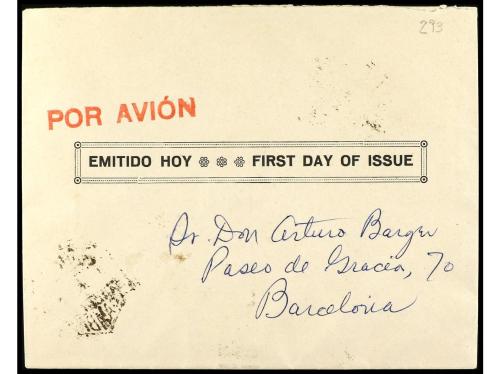 293
POR AVIÓN
EMITIDO HOY FIRST DAY OF ISSUE
Sr. Don Arturo Barger
Paseo de Gracia, 70
Barcelona